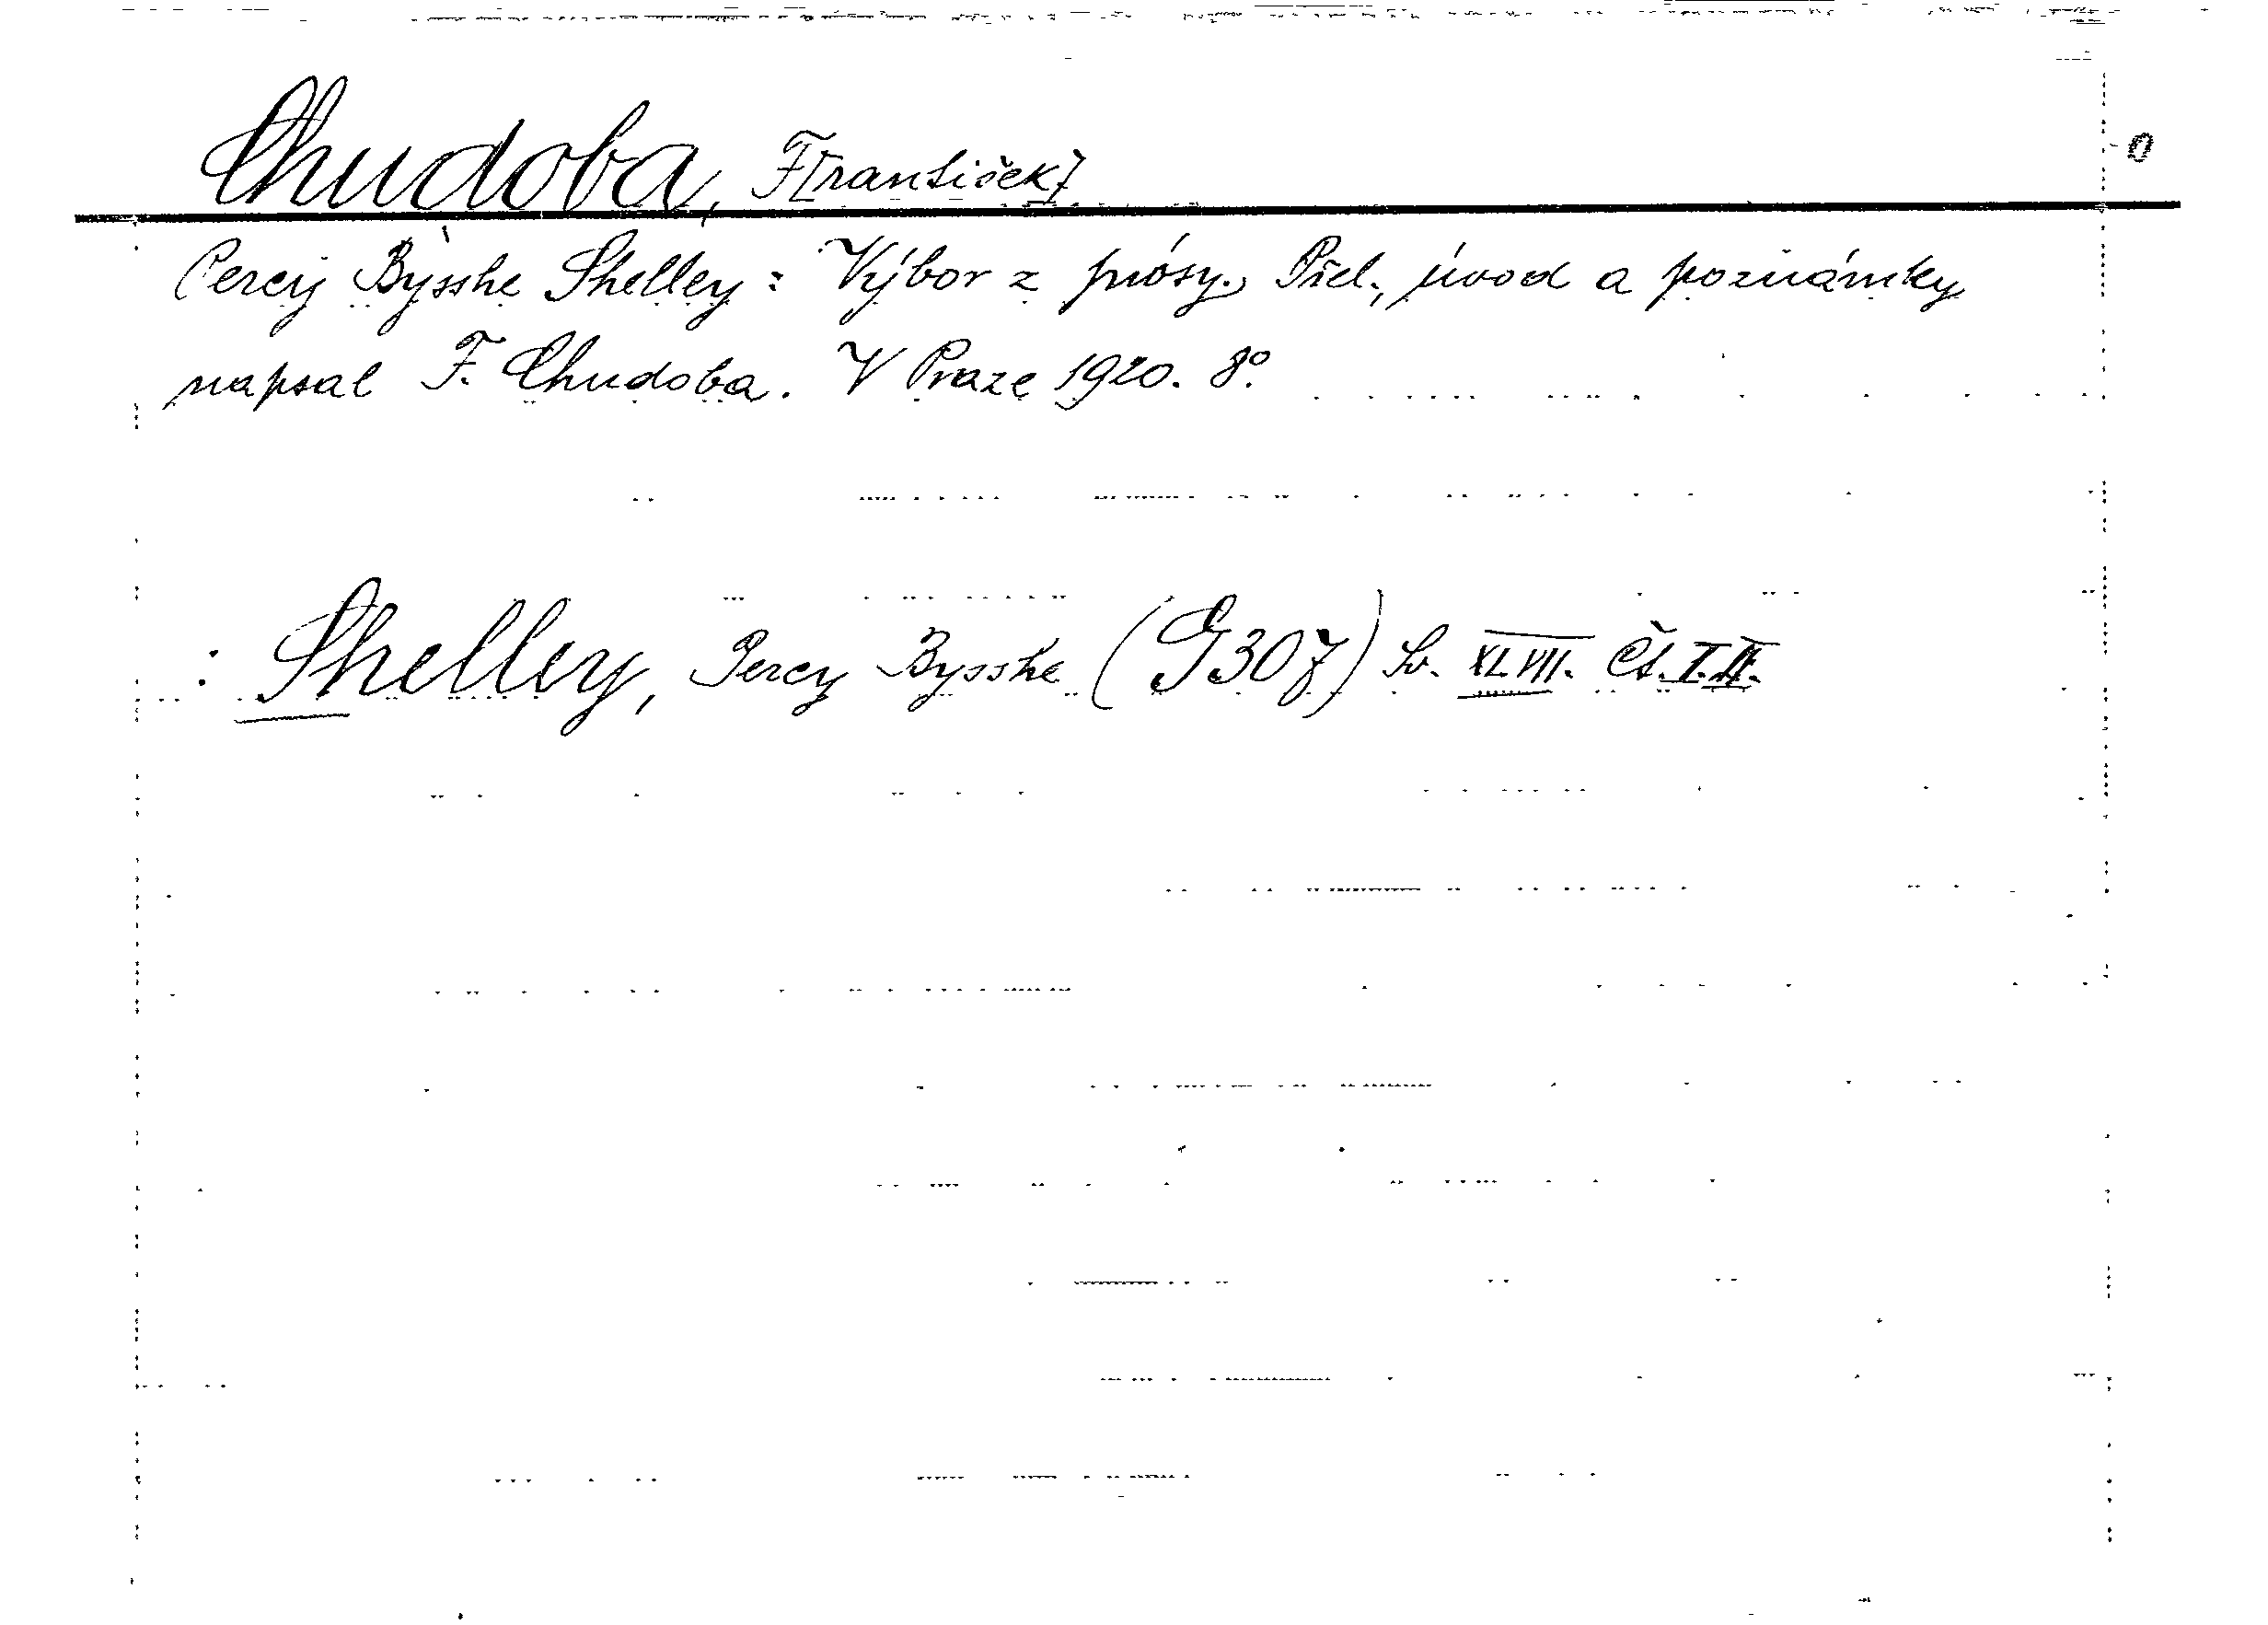 Chudoba, F[rantišek]
Percy Bysshe Shelley: Výbor z prósy. Přel., úvod a poznámky
napsal F. Chudoba. V Praze 1920. 8°.
: Shelley, Percy Bysshe (G307) Sv. XLVII. Čś. I. II.